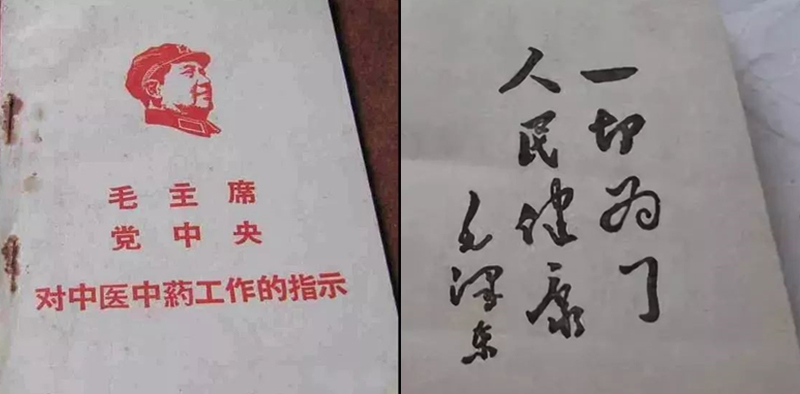 毛主席
党中央
对中医中药工作的指示
一切为了
人民健康
毛泽东